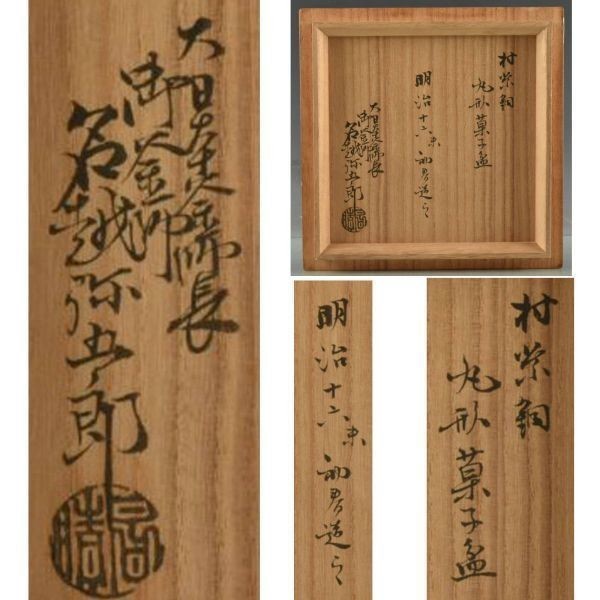 村紫銅
丸形菓子盆
明治十六未初春造之
大日本釜師長
御釜師
名越弥五郎
村紫銅
丸形菓子盆
明治十六未初春造之
大日本釜師長
御釜師
名越弥五郎